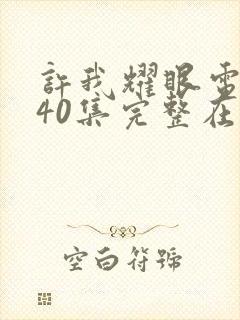 許我耀眼電
40集完整在
空白符號